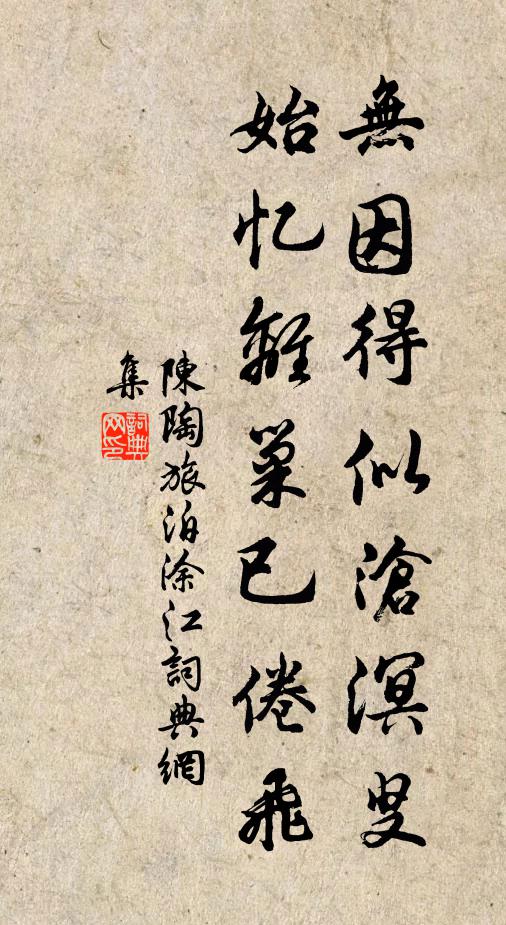 無因得似滄溟叟
始忆離巢已倦飛
陳陶旅泊涂江詞典網
集
詞典網印